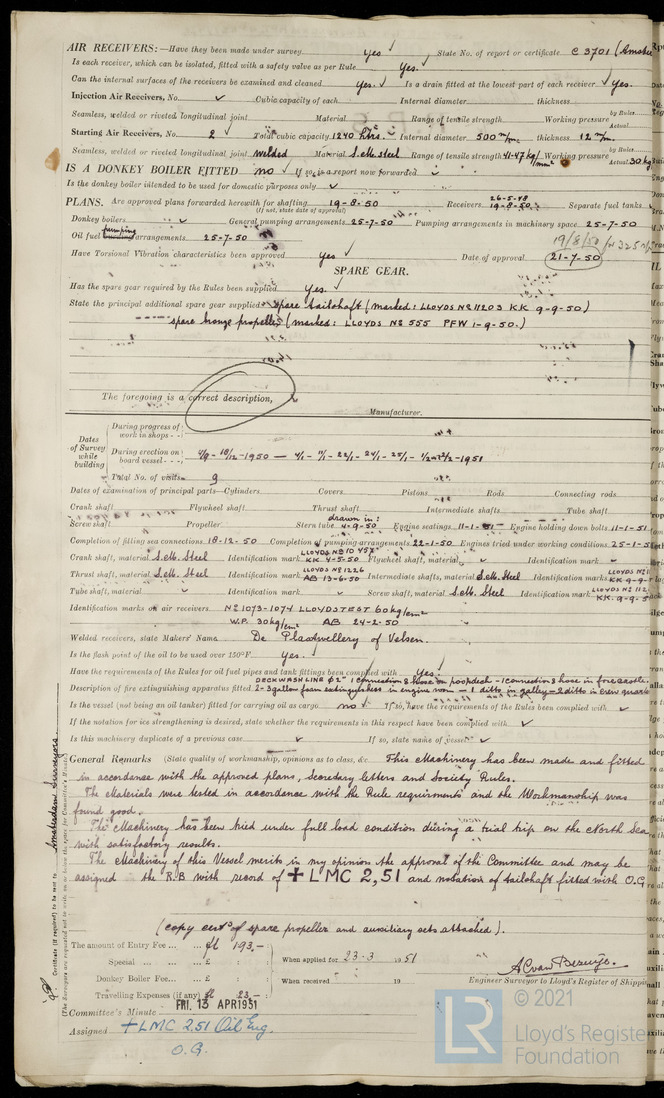 AIR RECEIVERS:—Have they been made under survey yes ✓ State No. of report or certificate C 3701
Is each receiver, which can be isolated, fitted with a safety valve as per Rule Yes. ✓
Can the internal surfaces of the receivers be examined and cleaned yes. ✓ Is a drain fitted at the lowest part of each receiver ✓ Yes.
Injection Air Receivers, No. ✓ Cubic capacity of each Internal diameter thickness
Seamless, welded or riveted longitudinal joint Material Range of tensile strength Working pressure by Rules Actual
Starting Air Receivers, No. 2 ✓ Total cubic capacity 1240 ltrs. Internal diameter 500 m/m thickness 12 m/m.
Seamless, welded or riveted longitudinal joint welded Material S.M. steel Range of tensile strength 41-47 kg/mm² Working pressure by Rules Actual 30 kg
IS A DONKEY BOILER FITTED no ✓ If so, is a report now forwarded
Is the donkey boiler intended to be used for domestic purposes only ✓
PLANS. Are approved plans forwarded herewith for shafting 19-8-50 Receivers 26-5-48 19-8-50 Separate fuel tanks
(If not, state date of approval)
Donkey boilers ✓ General pumping arrangements 25-7-50 Pumping arrangements in machinery space 25-7-50
Oil fuel pumping arrangements 25-7-50 19/8/50 for 325
Have Torsional Vibration characteristics been approved Yes ✓ Date of approval 21-7-50
SPARE GEAR.
Has the spare gear required by the Rules been supplied yes. ✓
State the principal additional spare gear supplied spare tailshaft (marked: LLOYDS Nº 11203 KK 9-9-50)
spare bronze propeller (marked: LLOYDS Nº 555 PFW 1-9-50.)
The foregoing is a correct description,
Manufacturer.
Dates of Survey while building
During progress of work in shops - -
During erection on board vessel - - - 4/9 - 18/12 -1950 — 4/1 - 11/1 - 22/1 - 24/1 - 25/1 - 1/2 - 22/2 -1951
Total No. of visits 9
Dates of examination of principal parts—Cylinders Covers Pistons Rods Connecting rods
Crank shaft Flywheel shaft Thrust shaft Intermediate shafts Tube shaft
Screw shaft Propeller Stern tube drawn in: 4-9-50 Engine seatings 11-1-51 Engine holding down bolts 11-1-51
Completion of fitting sea connections 18-12-50 Completion of pumping arrangements 22-1-50 Engines tried under working conditions 25-1-5
Crank shaft, material S.M. Steel Identification mark LLOYDS Nº 10457 KK 4-5-50 Flywheel shaft, material ✓ Identification mark ✓
Thrust shaft, material S.M. Steel Identification mark LLOYDS Nº 1226 AB 13-6-50 Intermediate shafts, material S.M. Steel Identification marks LLOYDS Nº KK 9-9-
Tube shaft, material ✓ Identification mark ✓ Screw shaft, material S.M. Steel Identification mark LLOYDS Nº 112 KK. 9-9-5
Identification marks on air receivers Nº 1073-1074 LLOYDS TEST 60 kg/cm²
W.P. 30 kg/cm² AB 24-2-50
Welded receivers, state Makers' Name De Plaatwellery of Velsen.
Is the flash point of the oil to be used over 150°F. yes. ✓
Have the requirements of the Rules for oil fuel pipes and tank fittings been complied with Yes.
DECKWASHLINE Ø 2" 1 connection & hose on poopdeck - 1 connection & hose in forecastle.
Description of fire extinguishing apparatus fitted 2-3 gallon foam extinguishers in engine room — 1 ditto in galley — 2 ditto in crew quart
Is the vessel (not being an oil tanker) fitted for carrying oil as cargo no ✓ If so, have the requirements of the Rules been complied with ✓
If the notation for ice strengthening is desired, state whether the requirements in this respect have been complied with ✓
Is this machinery duplicate of a previous case ✓ If so, state name of vessel ✓
General Remarks (State quality of workmanship, opinions as to class, &c. This Machinery has been made and fitted
in accordance with the approved plans, Secretary letters and Society Rules.
The Materials were tested in accordance with the Rule requirments and the Workmanship was
found good.
The Machinery has been tried under full load condition during a trial trip on the North Sea
with satisfactory results.
The Machinery of this Vessel merits in my opinion the approval of the Committee and may be
assigned the R.B with record of ✠ LMC 2,51 and notation of tailshaft fitted with O.G
(copy certs of spare propeller and auxiliary sets attached).
The amount of Entry Fee ... 193.-
Special ... ... £ : :
Donkey Boiler Fee... £ : :
Travelling Expenses (if any) 23.-
When applied for 23-3 1951
When received 19
Engineer Surveyor to Lloyd's Register of Shippin
Committee's Minute FRI. 13 APR 1951
Assigned +LMC 2.51 Oil Eng.
O.G.
Certificate (if required) to be sent to Amsterdam Surveyors.
(The Surveyors are requested not to write on or below the space for Committee's Minute)
© 2021
Lloyd's Registe
Foundation
LR